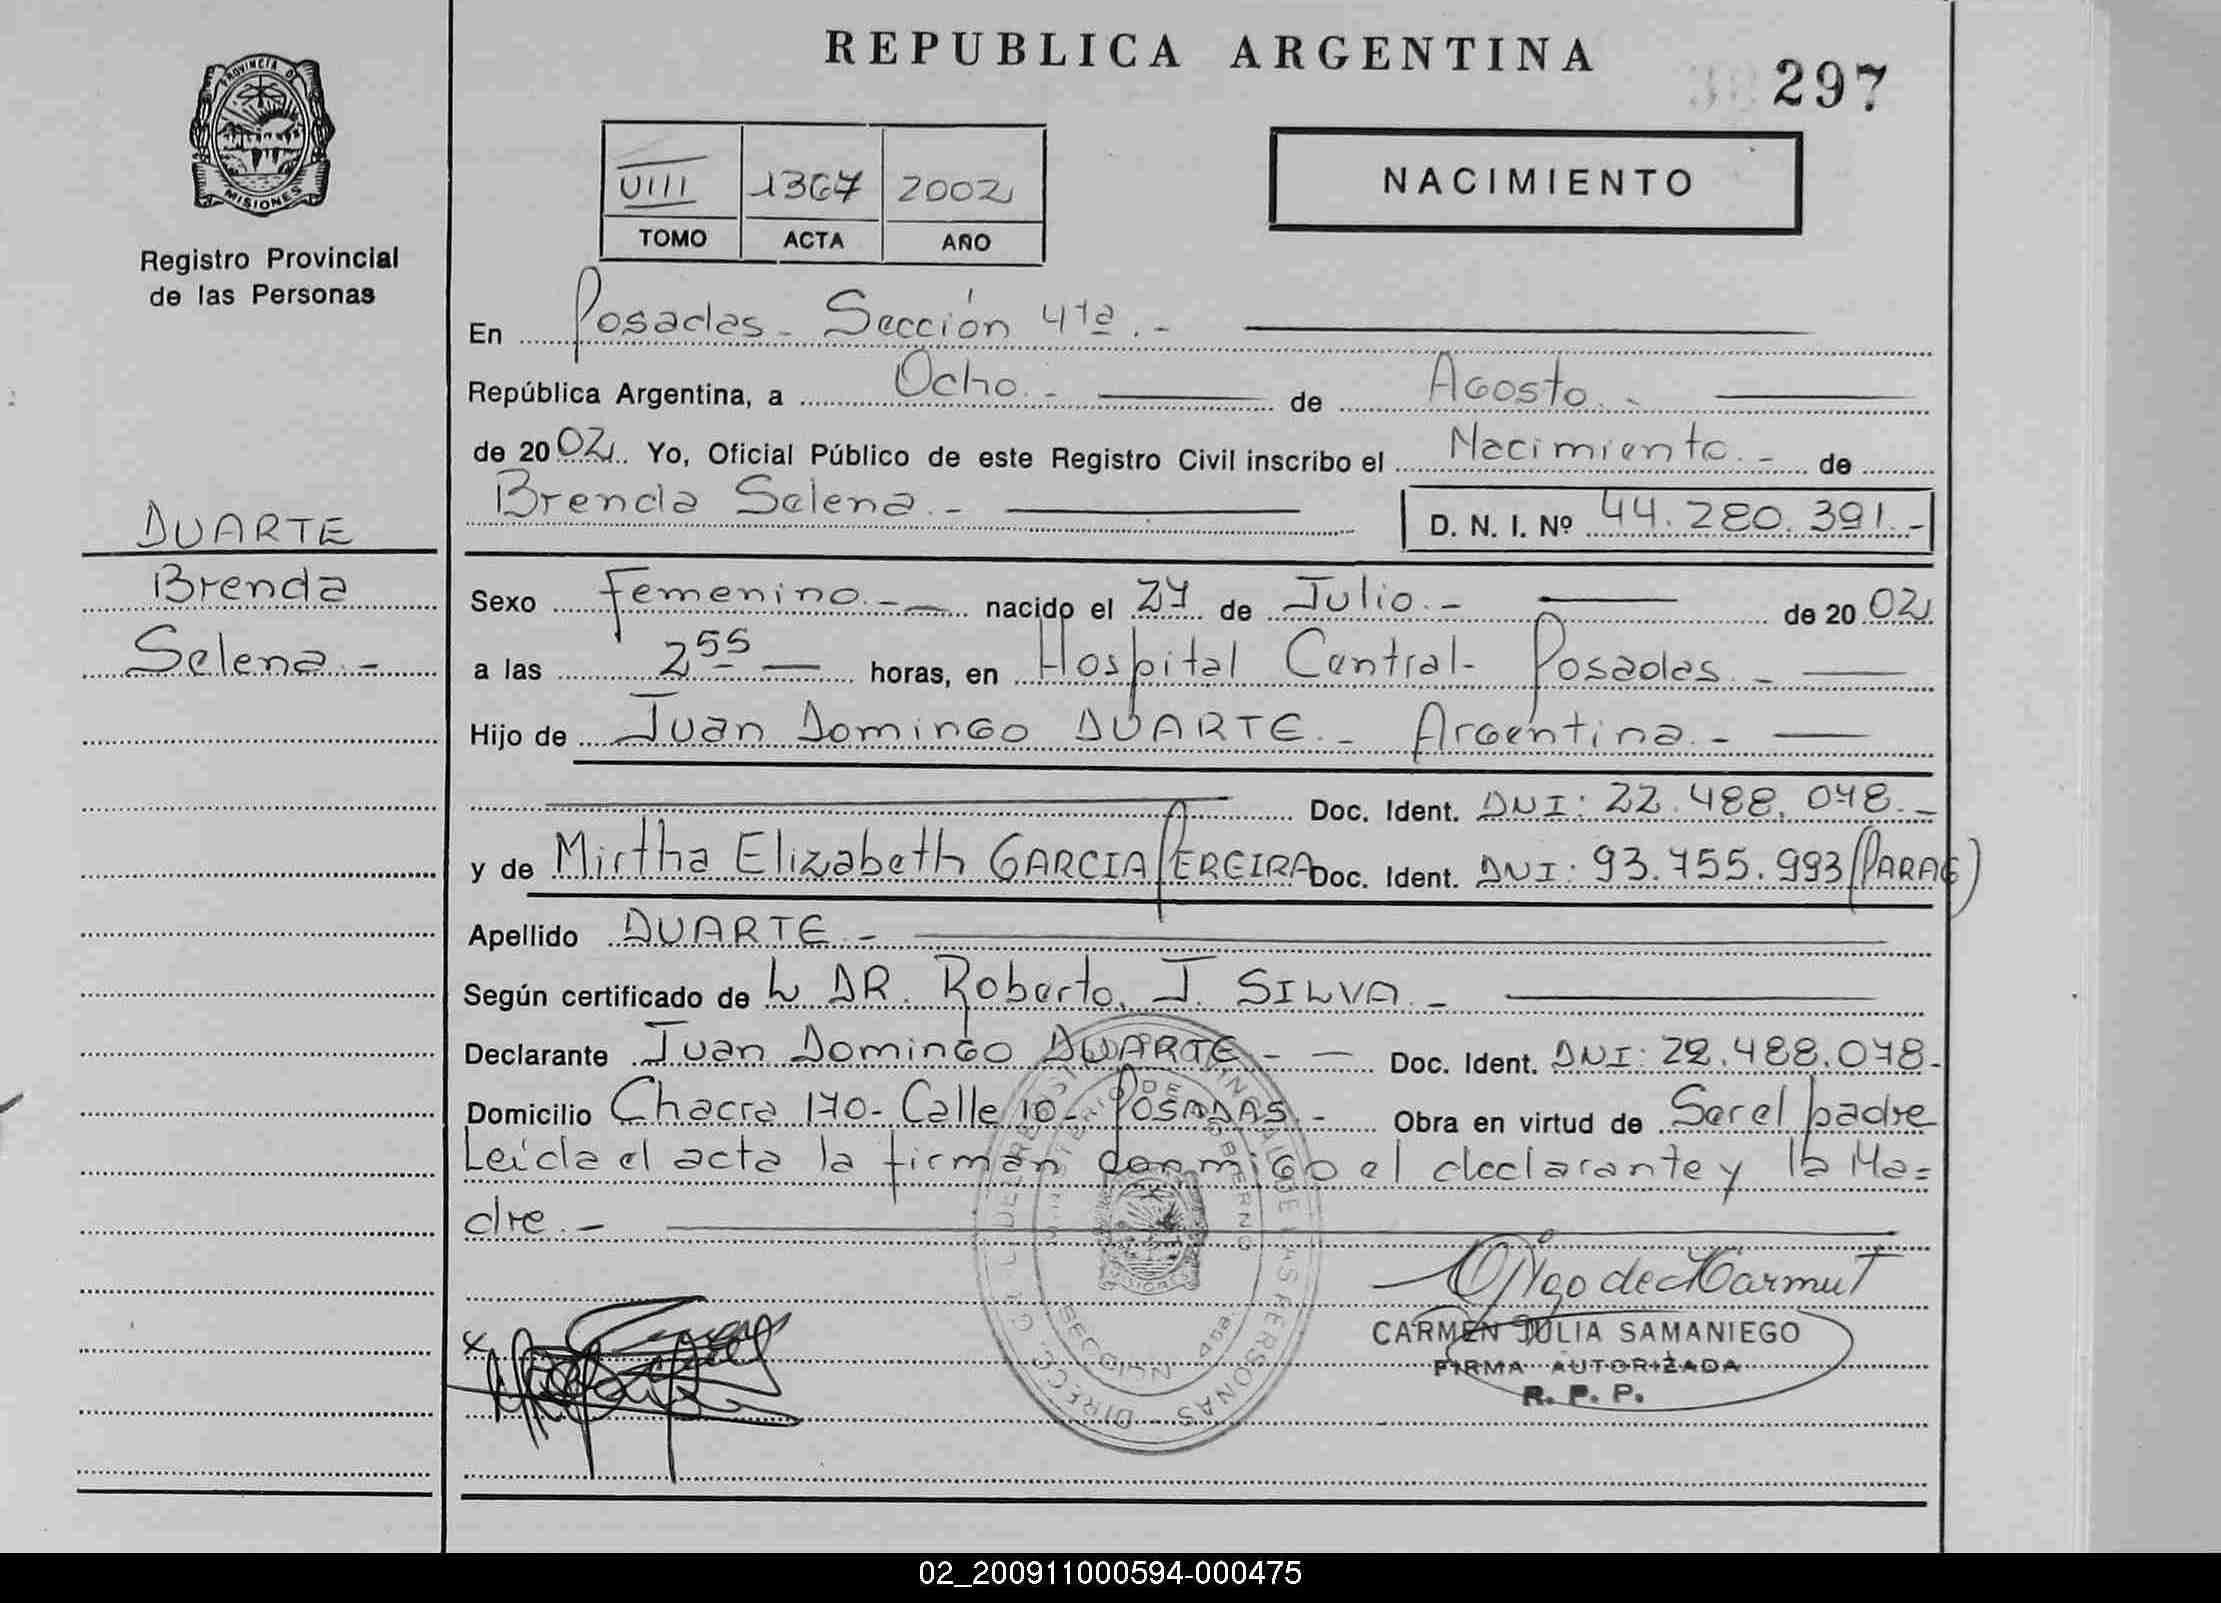 REPUBLICA ARGENTINA
297
PROVINCIA D
MISIONES
Registro Provincial
de las Personas
VIII 1367 2002
TOMO ACTA AÑO
NACIMIENTO
En Posadas - Sección 4ta.-
República Argentina, a Ocho.- de Agosto.-
de 2002. Yo, Oficial Público de este Registro Civil inscribo el Nacimiento.- de
Brenda Selena.- D. N. I. Nº 44.280.391.-
DUARTE
Brenda
Selena.-
Sexo Femenino.- nacido el 27 de Julio.- de 2002
a las 2 55 horas, en Hospital Central- Posadas.-
Hijo de Juan Domingo DUARTE.- Argentina.-
Doc. Ident. DNI: 22.488.078.-
y de Mirtha Elizabeth GARCIA PEREIRA Doc. Ident. DNI: 93.755.993 (PARAG)
Apellido DUARTE.-
Según certificado de L DR. Roberto. J. SILVA.-
Declarante Juan Domingo DUARTE.- Doc. Ident. DNI: 22.488.078.-
Domicilio Chacra 170- Calle 10- POSADAS.- Obra en virtud de Ser el padre
Leída el acta la firman conmigo el declarante y la Ma=
dre.-
CARMEN JULIA SAMANIEGO
FIRMA AUTORIZADA
R. P. P.
02_200911000594-000475